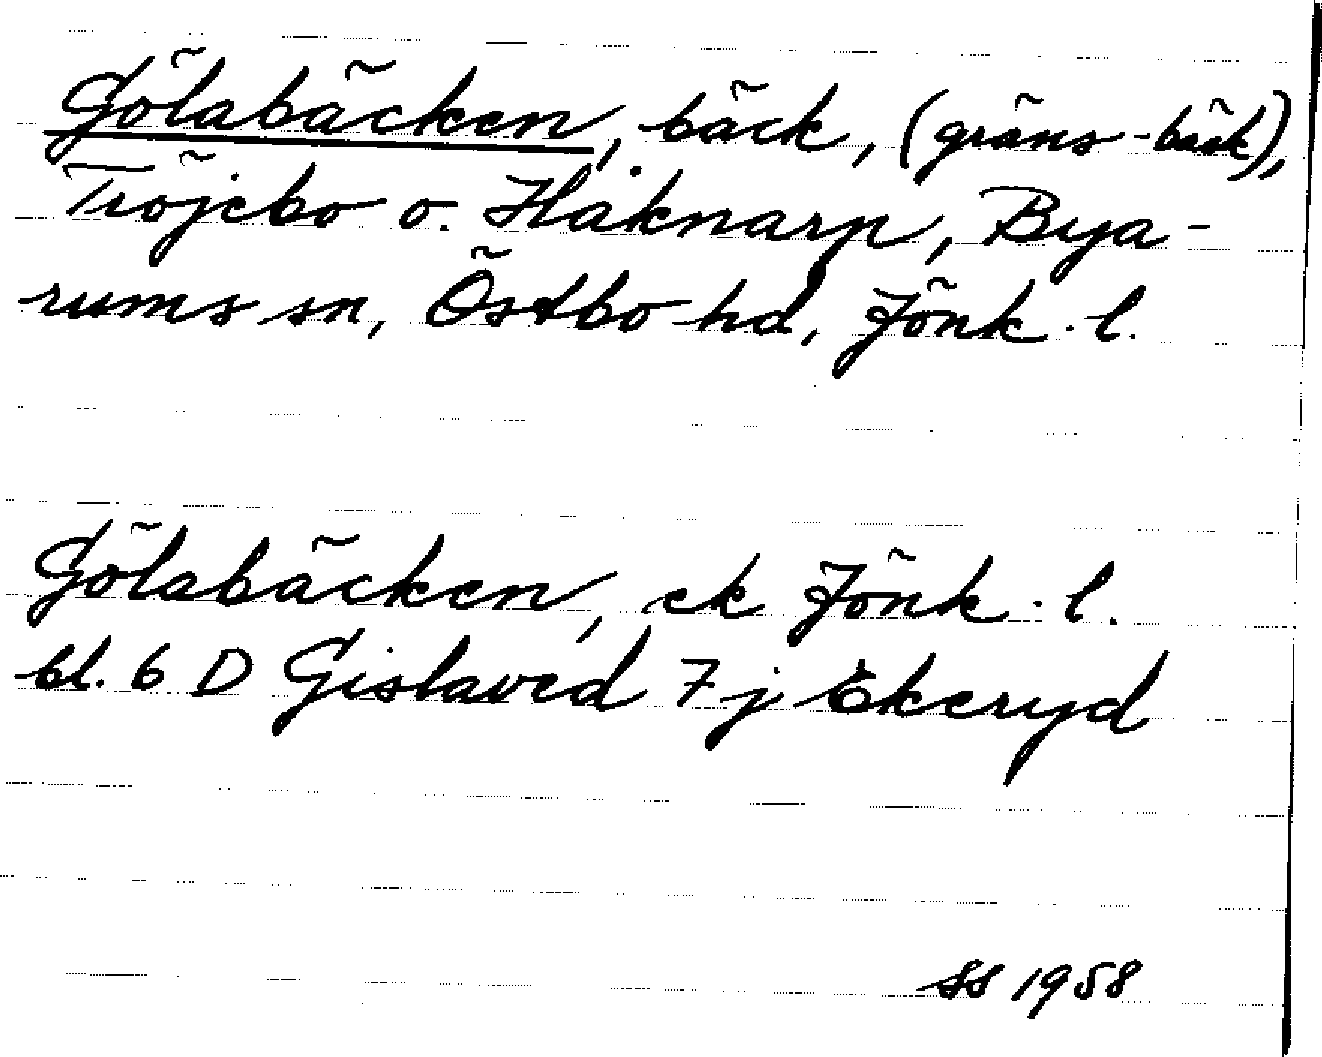 Gölabäcken, bäck, (gräns-bäck),
Tröjebo o. Håknarp, Bya-
rums sn, Östbo hd, Jönk. l.
Gölabäcken, ek Jönk. l.
bl. 6 D Gislaved 7 j Ekeryd
SS 1958